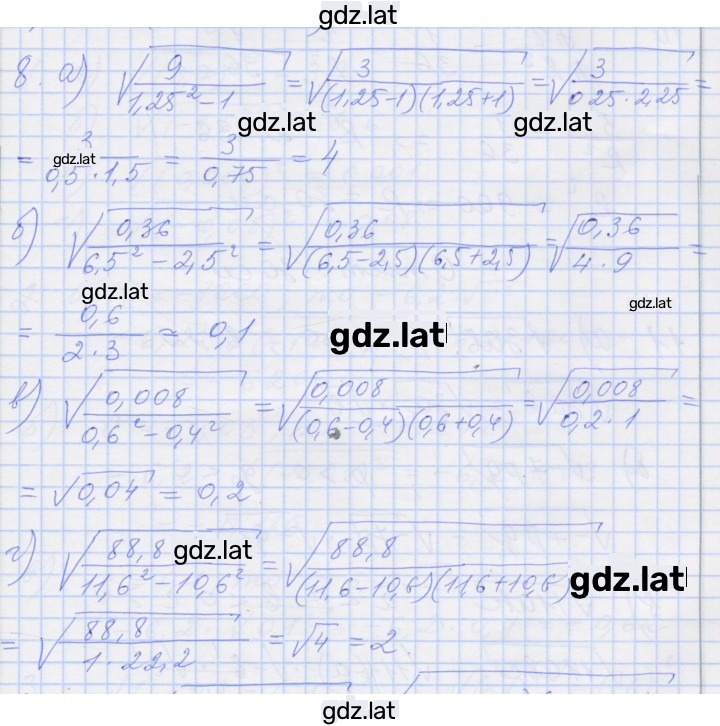 gdz.lat
8. а) √(9/(1,25² − 1)) = √(3/((1,25−1)(1,25+1))) = √(3/(0,25 · 2,25)) =
gdz.lat gdz.lat
= 3/(0,5 · 1,5) = 3/0,75 = 4
gdz.lat
б) √(0,36/(6,5² − 2,5²)) = √(0,36/((6,5−2,5)(6,5+2,5))) = √(0,36/(4 · 9)) =
gdz.lat gdz.lat
= 0,6/(2 · 3) = 0,1
gdz.lat
в) √(0,008/(0,6² − 0,4²)) = √(0,008/((0,6−0,4)(0,6+0,4))) = √(0,008/(0,2 · 1)) =
= √0,04 = 0,2.
г) √(88,8/(11,6² − 10,6²)) = √(88,8/((11,6−10,6)(11,6+10,6)))
gdz.lat gdz.lat
= √(88,8/(1 · 22,2)) = √4 = 2.
gdz.lat